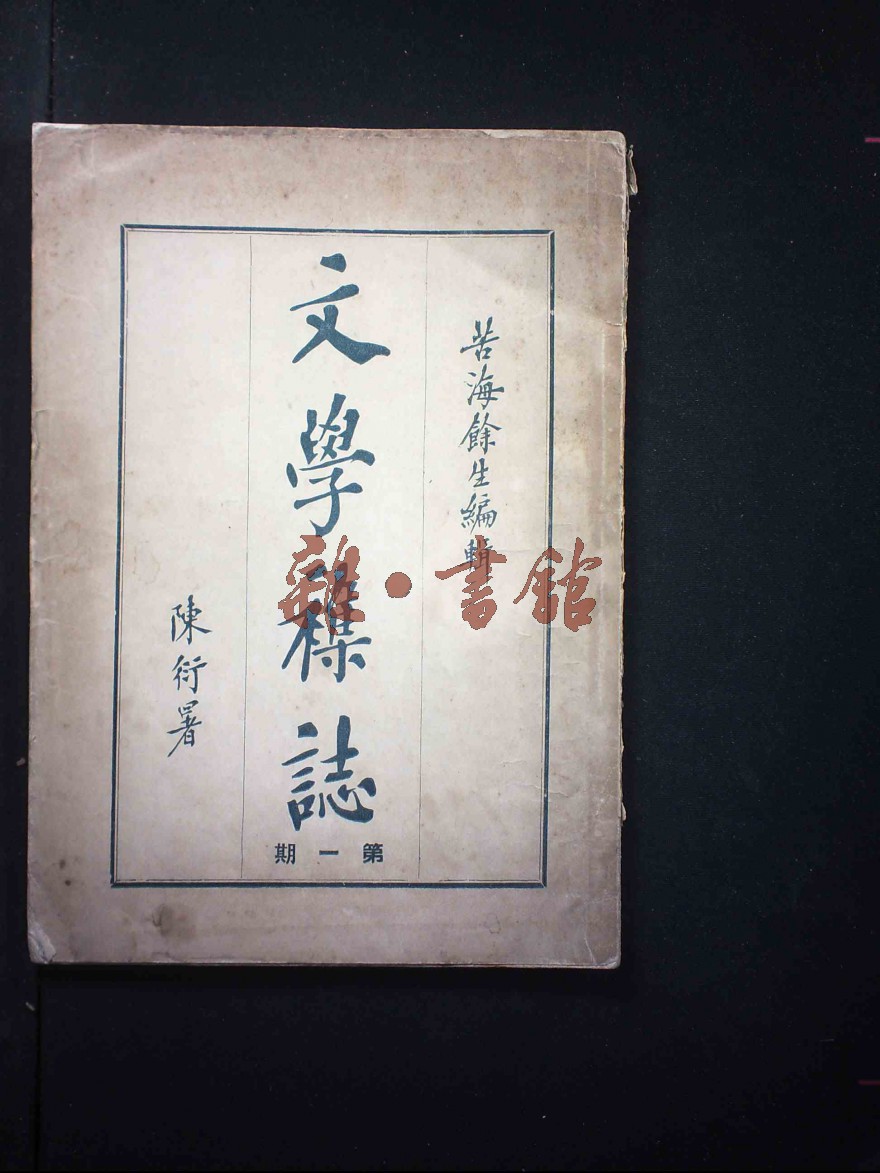 苦海餘生編輯
文學襍誌
第一期
陳衍署
雜·書館